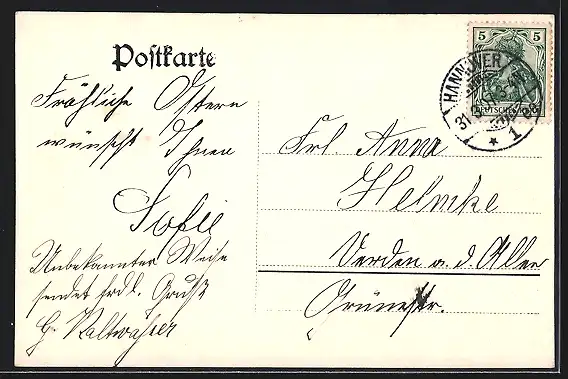 Postkarte
Fröhliche Ostern
wünscht Ihnen
Sofie
Unbekannter Weise
sendet frdl. Gruß
G. Kaltwasser
Frl Anna
Helmke
Verden a. d. Aller
Grünestr.
5 5
HANNOVER
1